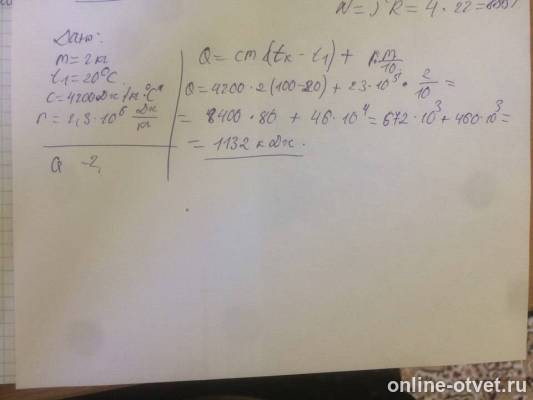 N = J²R = 4 · 22 =
Дано:
m = 2 кг
t₁ = 20°C
c = 4200 Дж/кг°C
r = 2,3·10⁶ Дж/кг
Q - ?
Q = cm(tк - t₁) + r m/10
Q = 4200 · 2 (100 - 20) + 23·10⁵ · 2/10 =
= 8400 · 80 + 46·10⁴ = 672·10³ + 460·10³ =
= 1132 кДж.
online-otvet.ru